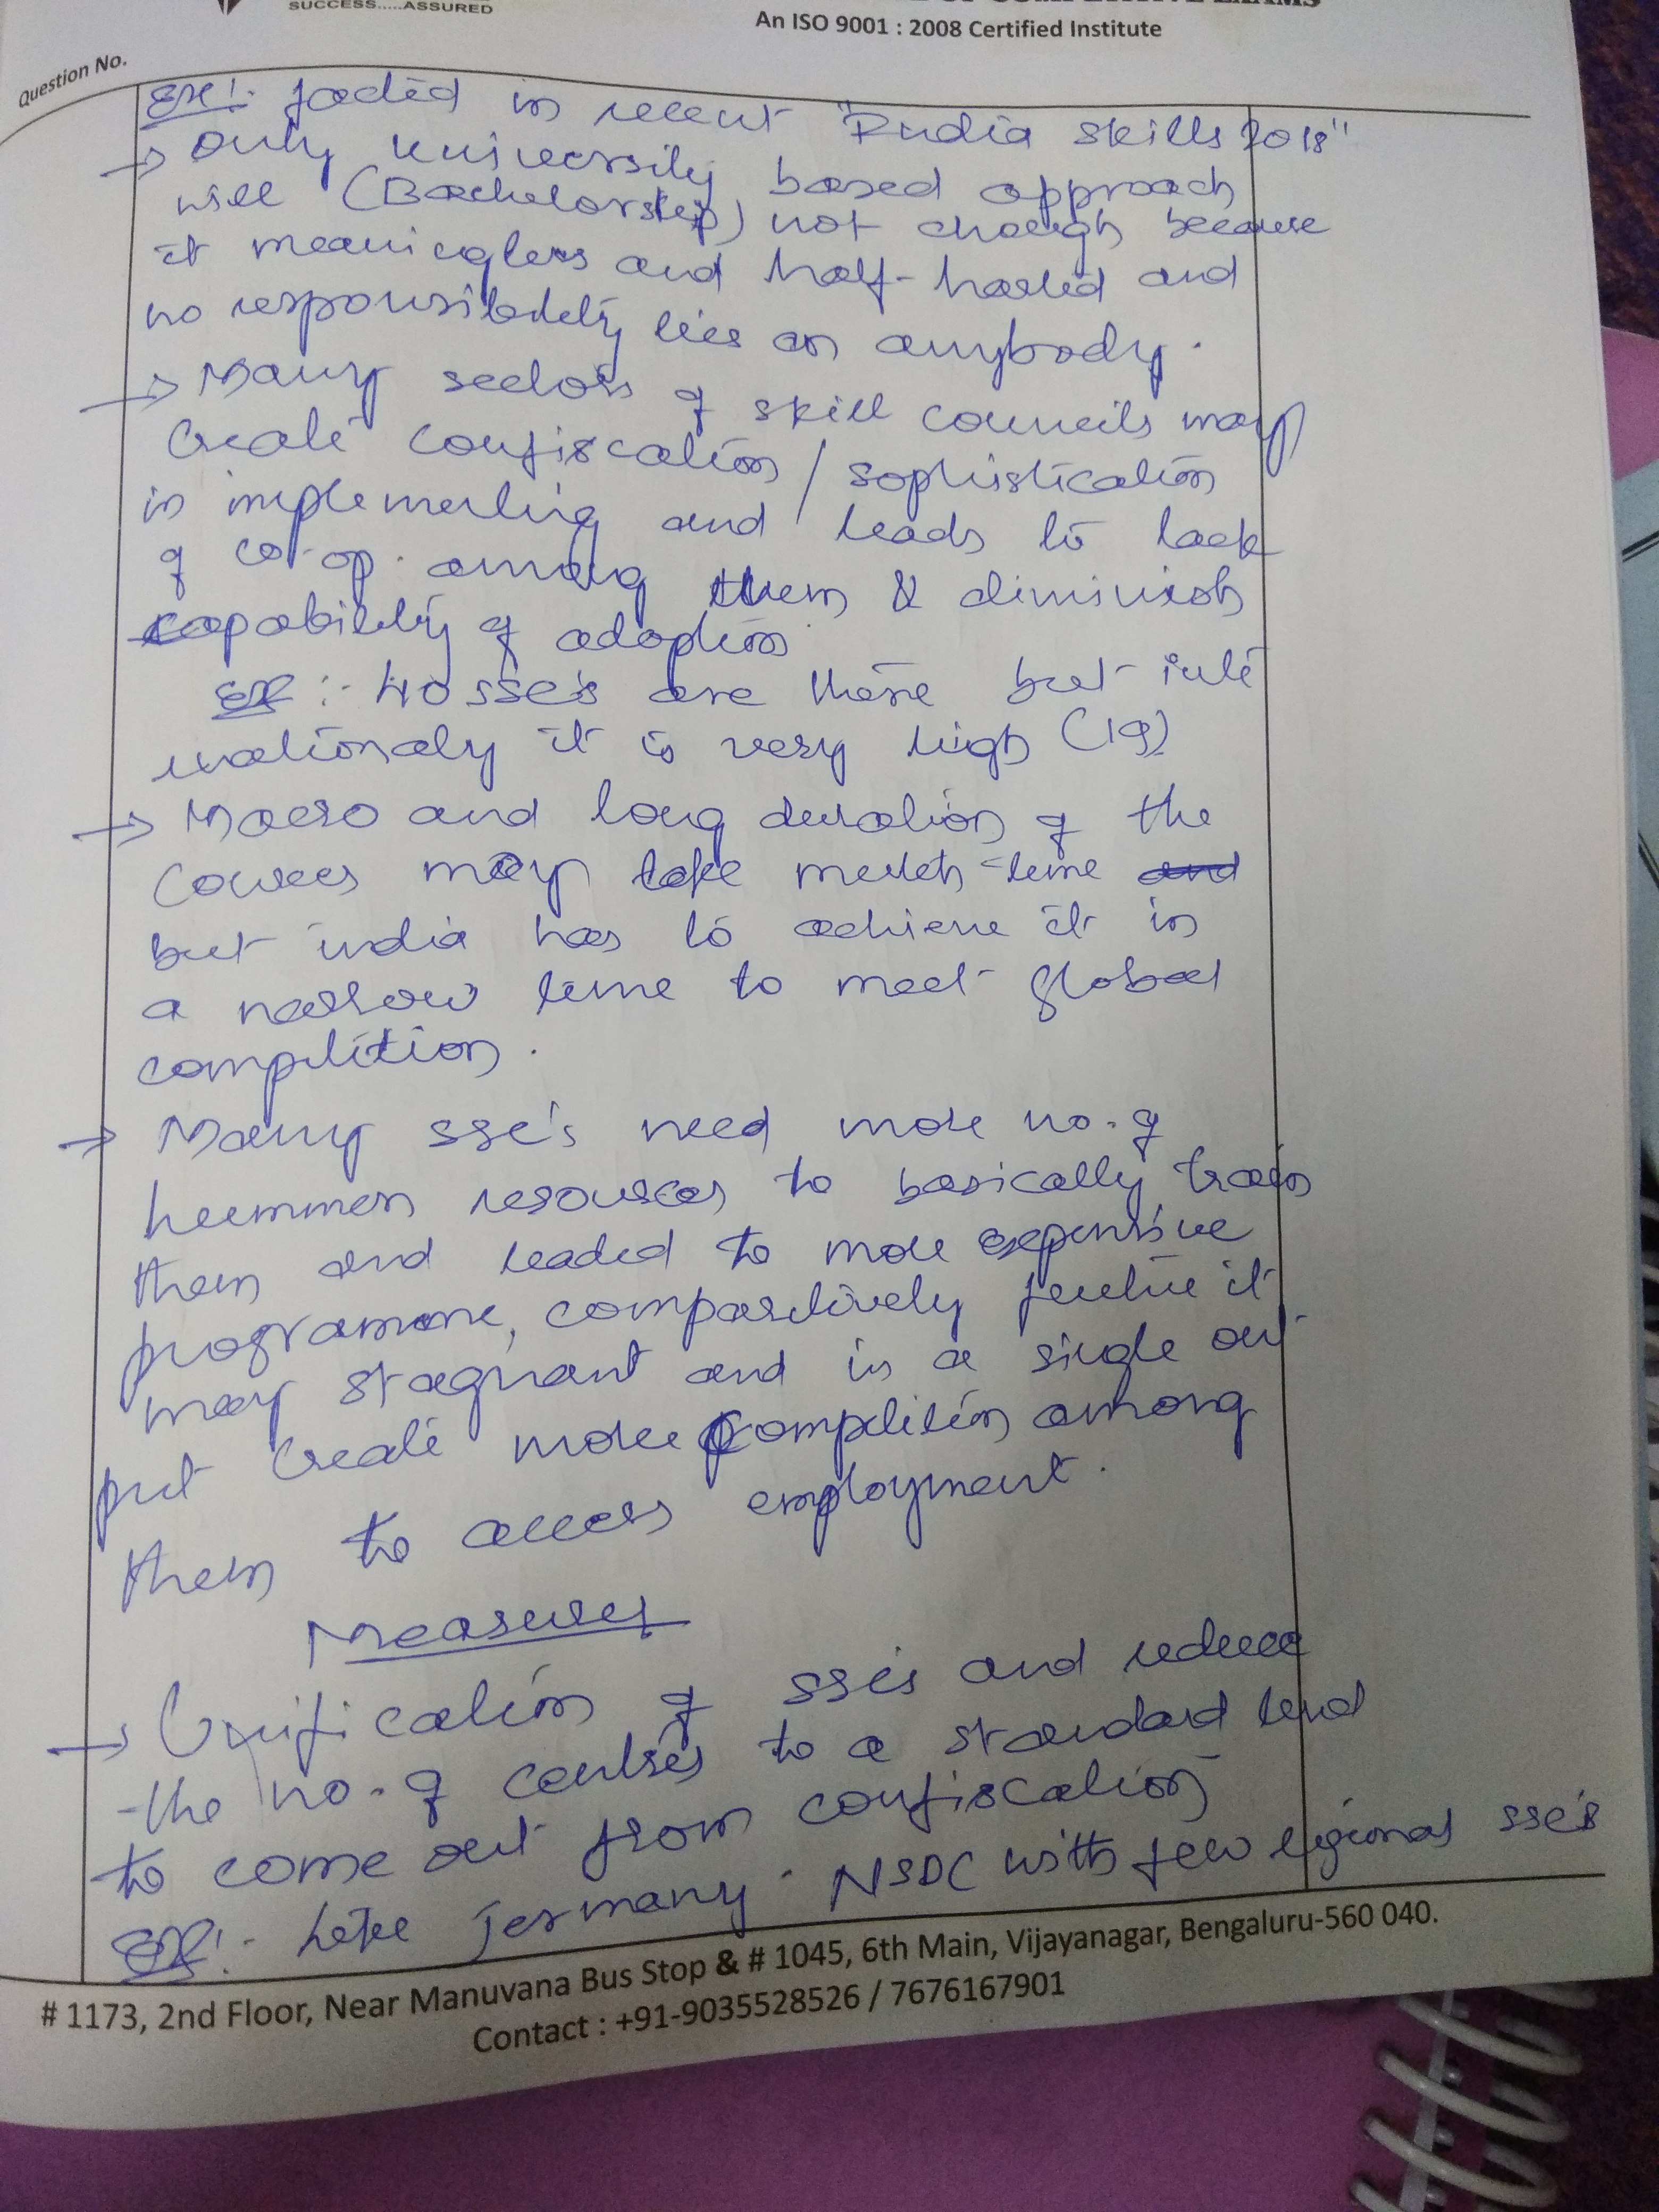 SUCCESS.....ASSURED
An ISO 9001 : 2008 Certified Institute
Question No.
Ex:- in recent "India skills 2018"
→ Only university based approach
will (Bachelorship) not enough because
it meaningless and half-hearted and
no responsibility lies on anybody.
→ Many sectors of skill councils may
create confiscation / sophistication
in implementing and leads to lack
of co-op. among them & diminish
capability of adoption
Ex :- 40 SSC's are there but inte
nationaly it is very high (19)
→ Macro and long duration of the
Courses may take much-time and
but india has to achieve it in
a narrow time to meet global
compitition.
→ Many SSC's need more no. of
hummen resources to basically train
them and leaded to more expensive
programme, comparitively it
may stagnant and in a single out
put create more compitition among
them to access employment.
Measures
→ Unification of SSC's and reduce
the no. of to a standard
to come out from confiscation
Ex:- Like Germany. NSDC with few regional SSC's
# 1173, 2nd Floor, Near Manuvana Bus Stop & # 1045, 6th Main, Vijayanagar, Bengaluru-560 040.
Contact : +91-9035528526 / 7676167901